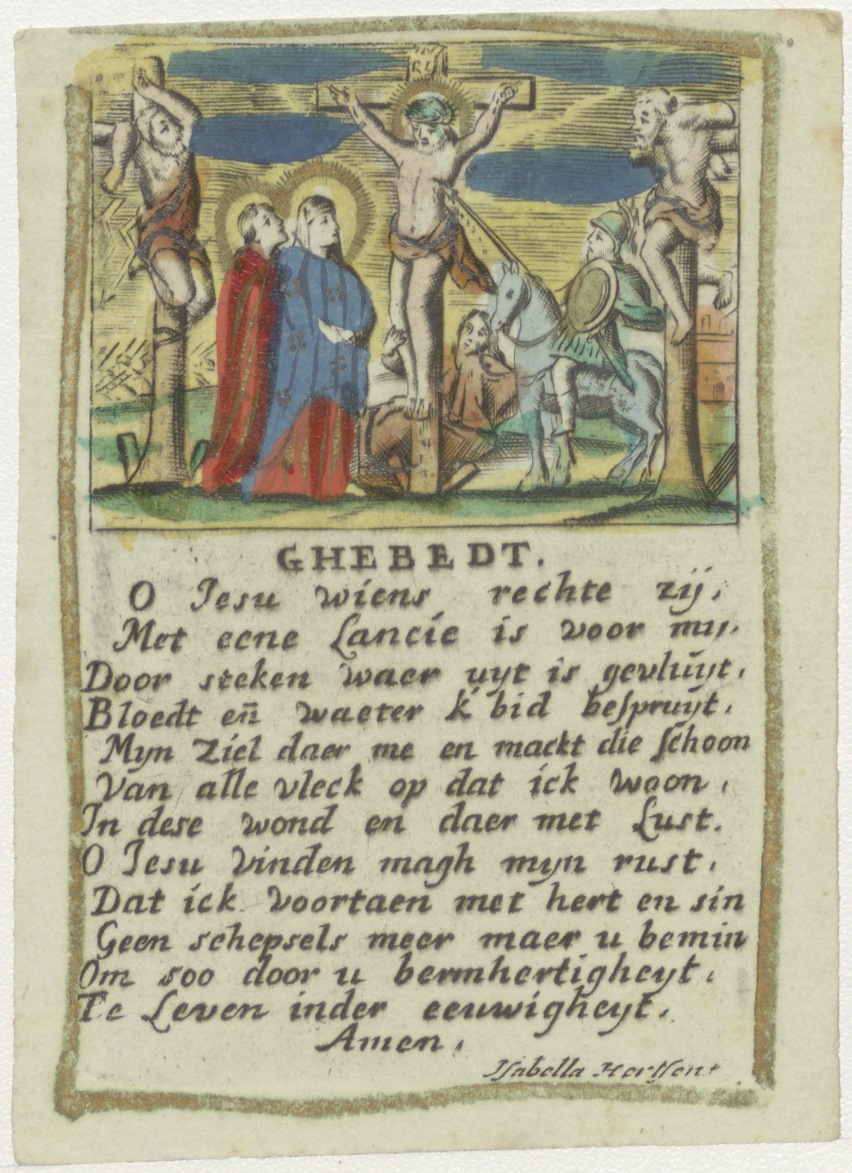 GHEBEDT.
O Jesu wiens rechte zij,
Met eene Lancie is voor mij,
Door steken waer uyt is gevluyt,
Bloedt en̄ waeter k'bid bespruyt,
Myn Ziel daer me en mackt die schoon
Van alle vleck op dat ick woon,
In dese wond en daer met Lust.
O Iesu vinden magh myn rust,
Dat ick voortaen met hert en sin
Geen schepsels meer maer u bemin
Om soo door u bermhertigheyt,
Te Leven inder eeuwigheyt,
Amen,
Isabella Hertsens